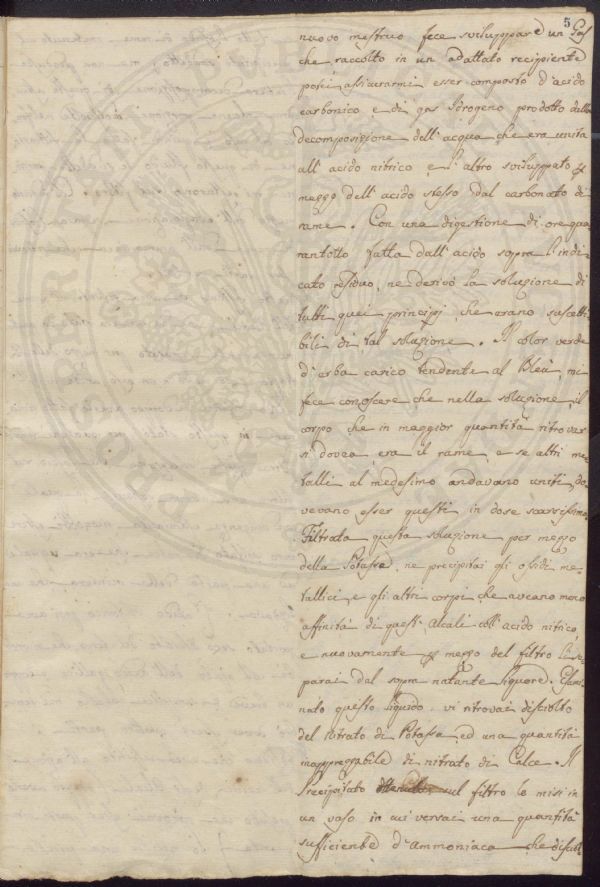 5
nuovo mestruo fece sviluppare un Gas
che raccolto in un adattato recipiente
potei assicurarmi esser composto d'acido
carbonico e di gas Idrogeno prodotto dalla
decomposizione dell'acqua che era unita
all'acido nitrico e l'altro sviluppato p
mezzo dell'acido stesso dal carbonato di
rame. Con una digestione di ore qua
rantotto fatta dall'acido sopra l'indi
cato residuo, ne derivò la soluzione di
tutti quei principj che erano suscetti
bili di tal soluzione. Il color verde
d'erba carico tendente al Bleù, mi
fece conoscere che nella soluzione il
corpo che in maggior quantità ritrovar
si dovea era il rame, e se altri me
talli al medesimo andavano uniti, do
vevano esser questi in dose scarsissima
Filtrata questa soluzione per mezzo
della Potassa, ne precipitai gli ossidi me
tallici, e gli altri corpi che aveano meno
affinità di questi Alcali coll'acido nitrico,
e nuovamente p mezzo del filtro li se
parai dal sopra natante liquore. Esami
nato questo liquido vi ritrovai disciolto
del Nitrato di Potassa, ed una quantità
inapprezzabile di nitrato di Calce. Il
Precipitato sul filtro lo misi in
un vaso in cui versai una quantità
sufficiente d'ammoniaca che disciol